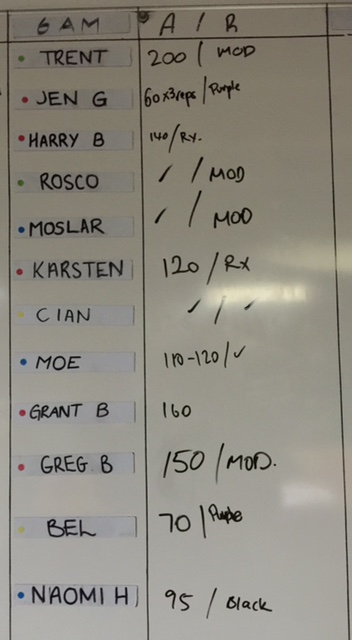 6 AM A / R
TRENT 200 / MOD
JEN G 60x3reps / Purple
HARRY B 140 / Rx.
ROSCO ✓ / MOD
MOSLAR ✓ / MOD
KARSTEN 120 / RX
CIAN ✓ / ✓
MOE 110-120 / ✓
GRANT B 160
GREG B 150 / MOD.
BEL 70 / Purple
NAOMI H 95 / Black